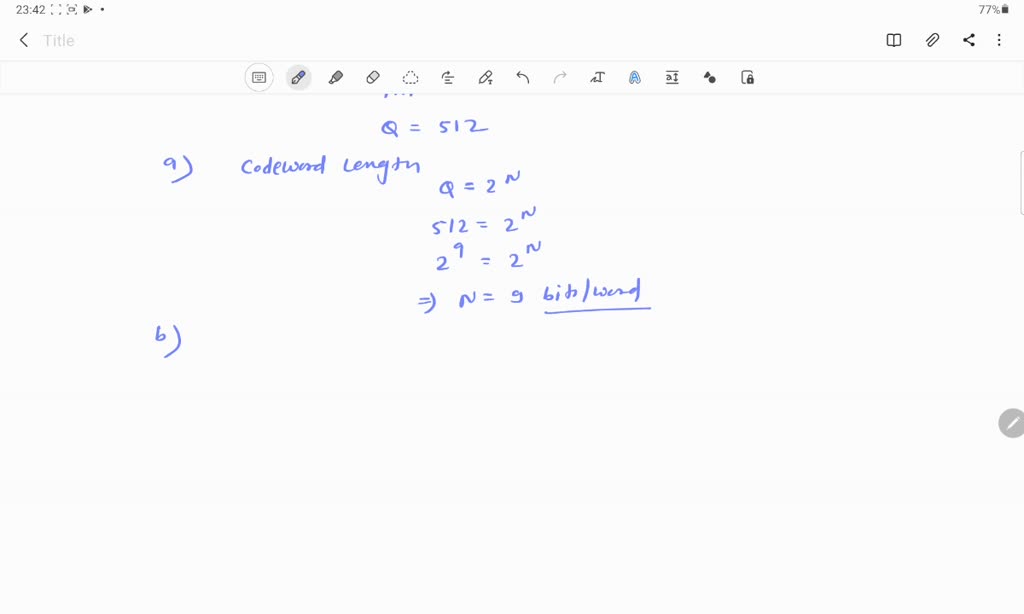 23:42
77%
Title
Q = 512
a) Codeword Length
Q = 2^N
512 = 2^N
2^9 = 2^N
⇒ N = 9 bits/word
b)